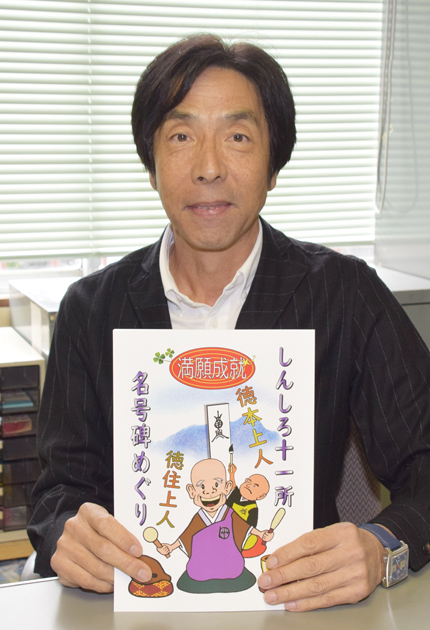 満願成就
しんしろ十一所
徳本上人
徳住上人
名号碑めぐり